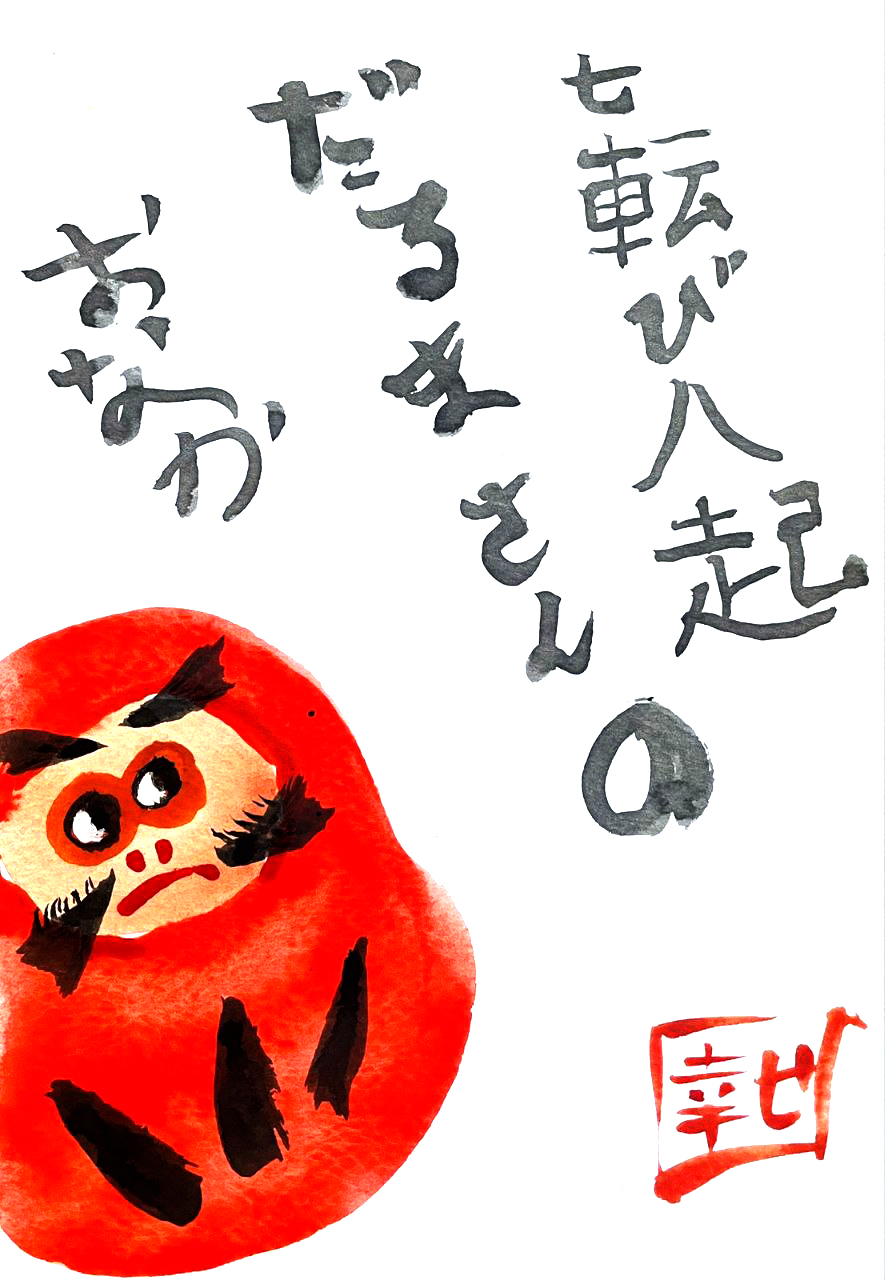 七転び八起
だるまさんの
おなか
幸せ